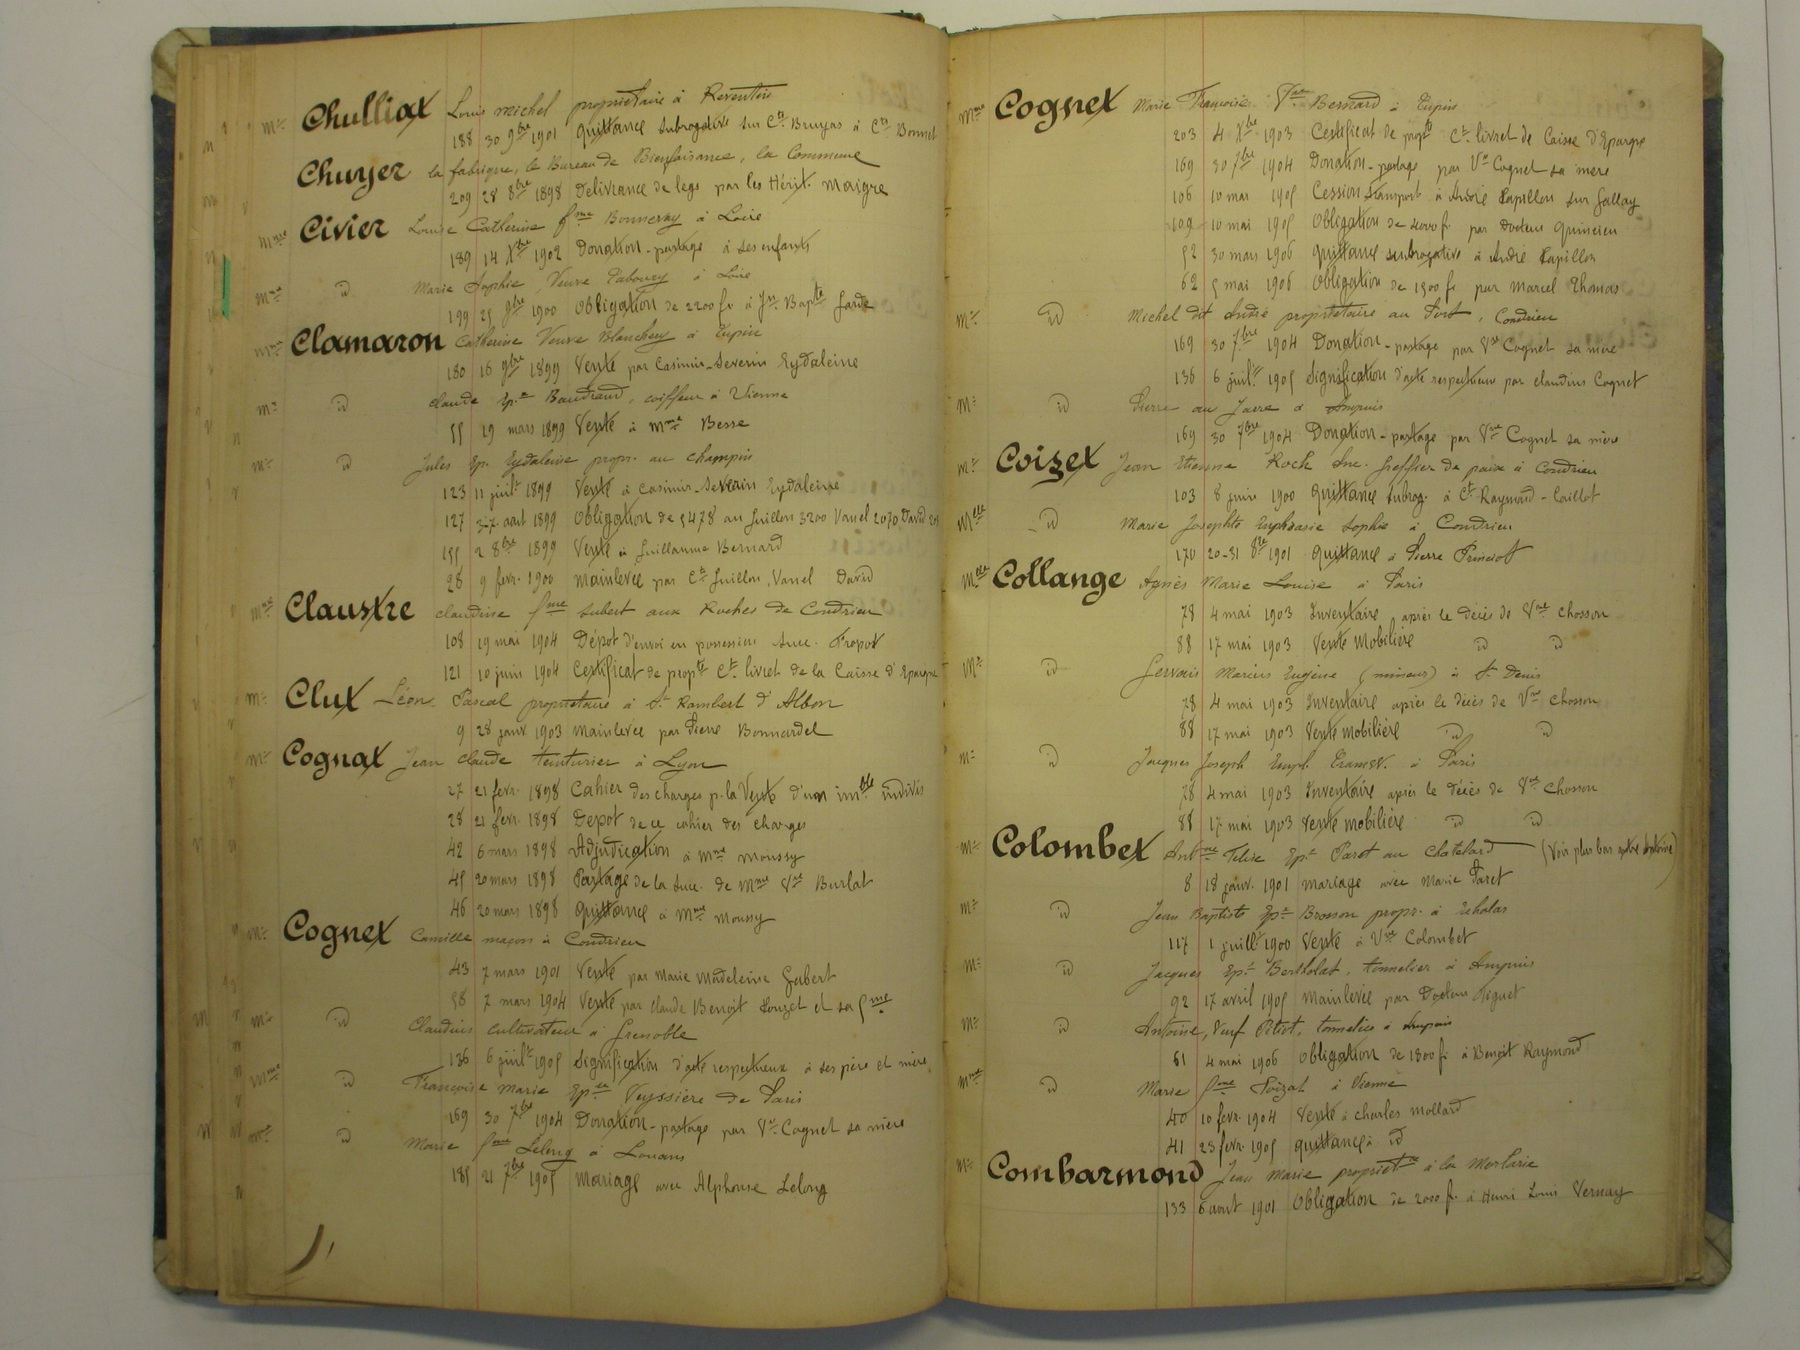 Mr Chulliat Louis Michel propriétaire à Reventin
188 30 9bre 1901 Quittance subrogative sur Cts Bruyas à Cts Bonnet
Chuyer la fabrique, le Bureau de Bienfaisance, la Commune
209 28 8bre 1898 Delivrance de legs par les Hérit. Maigre
Mme Civier Louise Catherine fme Bonneray à Loire
189 14 Xbre 1902 Donation-partage à ses enfants
Mme id Marie Sophie Veuve Faboury à Loire
199 25 9bre 1900 Obligation de 2200 fr à Jn Bapte Garde
Mme Clamaron Catherine Veuve Blanchey à Tupin
180 16 9bre 1899 Vente par Casimir-Severin Eydaleine
Mr id Claude Epx Baudrand, coiffeur à Vienne
55 19 mars 1899 Vente à Mme Besse
Mr id Jules Ep. Eydaleine propr. au champin
123 11 juilt 1899 Vente à Casimir-Severin Eydaleine
127 27 aout 1899 Obligation de 5478 au Guillon 3200 Vanel 2070 David
155 2 8bre 1899 Vente à Guillaume Bernard
28 9 fevr. 1900 mainlevée par Cts Guillon, Vanel David
Mme Claustre claudine fme Subert aux Roches de Condrieu
108 19 mai 1904 Dépot d'envoi en possession Succ. Tropot
121 10 juin 1904 Certificat de propté Ct livret de la Caisse d'Epargne
Mr Clut Léon Pascal propriétaire à St Rambert d'Albon
9 28 janv 1903 mainlevée par Pierre Bonnardel
Mr Cognat Jean Claude teinturier à Lyon
27 21 fevr. 1898 Cahier des charges p. la Vente d'un imble indivis
28 21 fevr. 1898 Depot de ce cahier des charges
42 6 mars 1898 Adjudication à Mme Moussy
45 20 mars 1898 Partage de la Succ. de Mme Vve Burlat
46 20 mars 1898 Quittance à Mme Moussy
Mr Cognet Camille maçon à Condrieu
43 7 mars 1901 Vente par Marie Madeleine Gubert
58 7 mars 1904 Vente par Claude Benoit Louzet et sa fme
Mr id Claudius cultivateur à Grenoble
136 6 juilt 1905 Signification d'acte respectueux à ses père et mère
Mme id Françoise Marie Epse Veyssière de Paris
169 30 7bre 1904 Donation-partage par Vve Cognet sa mère
Mme id Marie fme Lelong à Louans
185 21 7bre 1905 Mariage avec Alphonse Lelong
Mme Cognet Marie Françoise Vve Bernard à Tupin
203 4 Xbre 1903 Certificat de propté Ct livret de Caisse d'Epargne
169 30 7bre 1904 Donation-partage par Ve Cognet sa mère
106 10 mai 1905 Cession Transport à André Papillon sur Gallay
109 10 mai 1905 Obligation de 4000 fr par Docteur Quincieu
52 30 mars 1906 Quittance subrogative à André Papillon
62 5 mai 1906 Obligation de 1500 fr par Marcel Thomas
Mr id Michel dit André propriétaire au Port, Condrieu
169 30 7bre 1904 Donation-partage par Vve Cognet sa mère
136 6 juilt 1905 Signification d'acte respectueux par Claudius Cognet
Mr id Pierre au à Ampuis
169 30 7bre 1904 Donation-partage par Vve Cognet sa mère
Mr Coizet Jean Etienne Roch Greffier de paix à Condrieu
103 8 juin 1900 Quittance subrog. à Ct Raymond-Caillot
Melle id Marie Josephte Euphrasie Sophie à Condrieu
170 20-31 8bre 1901 Quittance à Pierre
Melle Collange Agnès Marie Louise à Paris
78 4 mai 1903 Inventaire après le décès de Vve Chosson
88 17 mai 1903 Vente mobilière id id
Mr id Gervais Marius Eugène (mineur) à St Denis
78 4 mai 1903 Inventaire après le décès de Vve Chosson
88 17 mai 1903 Vente mobilière id id
Mr id Jacques Joseph à Paris
78 4 mai 1903 Inventaire après le décès de Vve Chosson
88 17 mai 1903 Vente mobilière id id
Mr Colombet Antne Felix Epx Paret au Chatelard (Voir plus bas autre Antoine)
8 18 janv. 1901 mariage avec Marie Paret
Mr id Jean Baptiste Epx Brosson propr. à Echalas
117 1 juillt 1900 Vente à Vve Colombet
Mr id Jacques Epx Bertholat, tonnelier à Ampuis
92 17 avril 1905 Mainlevée par Docteur Piguet
Mr id Antoine, Veuf Pitiot, tonnelier à Ampuis
61 4 mai 1906 Obligation de 1800 fr à Benoit Raymond
Mme id Marie fme Poizat à Vienne
40 10 fevr. 1904 Vente à Charles Mollard
41 23 fevr. 1905 Quittance à id
Mr Combarmond Jean Marie propriétre à la Mortarie
133 6 aout 1901 Obligation de 2000 fr. à Henri Louis Vernay